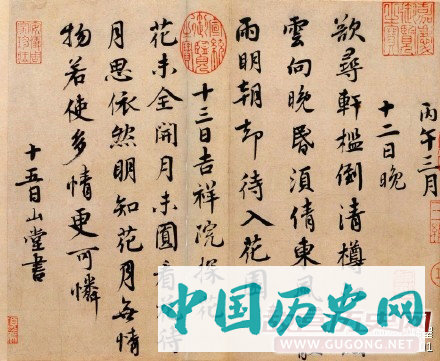 丙午三月
十二日晚
欲尋軒檻倒清樽
雲向晚昏須倩東風
雨明朝却待入花
十三日吉祥院探
花未全開月未圓看待
月思依然明知花月無情
物若使多情更可憐
十五日山堂書
中国历史网
www.GUGONG.net